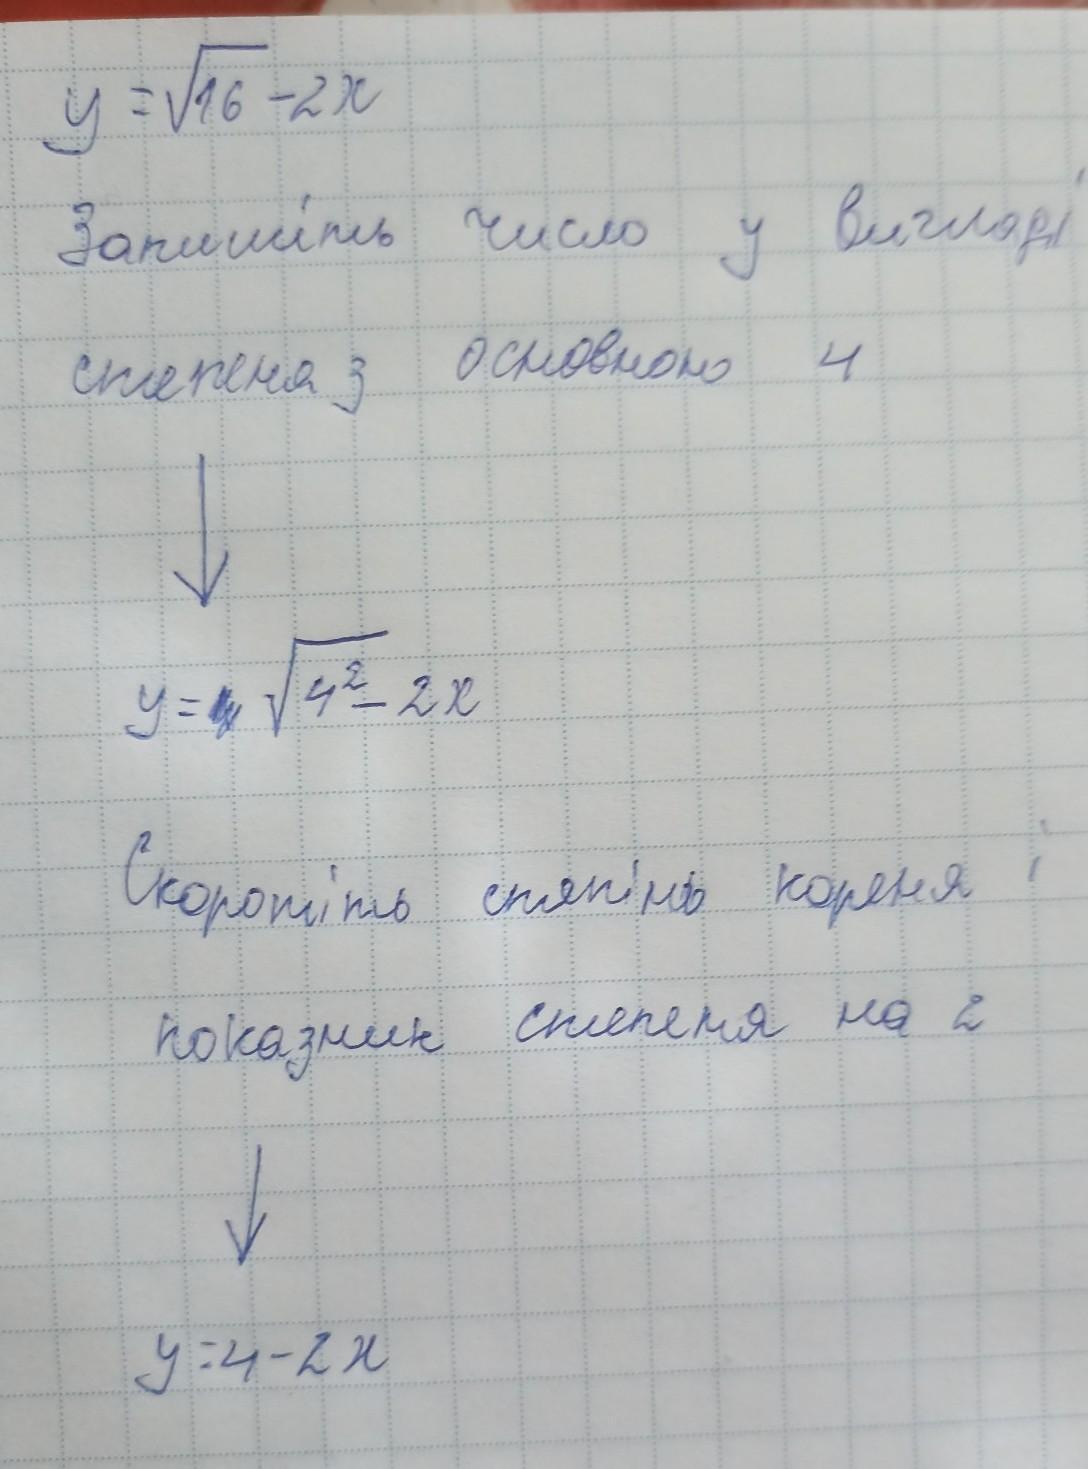 y = √16 - 2x
Запишіть число у вигляді
степеня з основною 4
y = √4² - 2x
Скоротіть степінь кореня і
показник степеня на 2
y = 4 - 2x